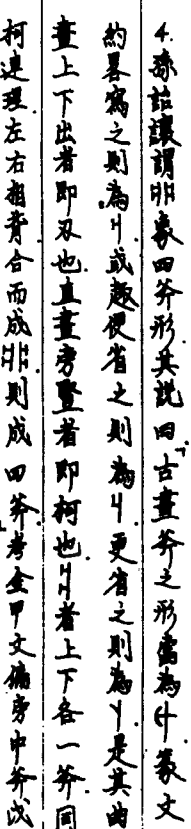 4.孫詒讓謂非象四斧形其說曰「古畫斧之形當為 篆文
約畧寫之則為 或趣便省之則為 更省之則為 是其曲
畫上下出者即刃也.直畫旁豎者即柯也. 者上下各一斧.同
柯連理.左右相背合而成非.則成四斧.考金甲文偏旁中斧戉